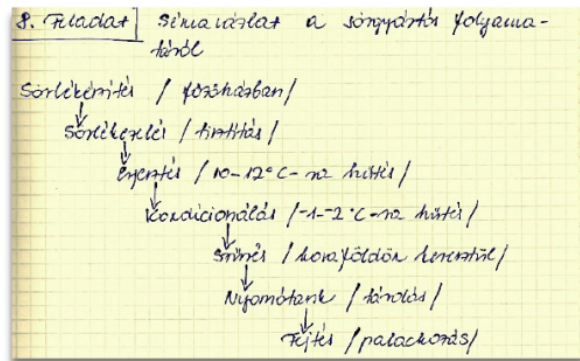 8. Feladat Sémavázlat a sörgyártás folyama-
táról
Sörlékészítés / főzőházban/
Sörlékezelés / tisztítás/
Erjesztés / 10-12°C-ra hűtés/
Kondicionálás /-1--2°C-ra hűtés/
Szűrés / kovaföldön keresztül/
Nyomótank / tárolás/
Fejtés /palackozás/